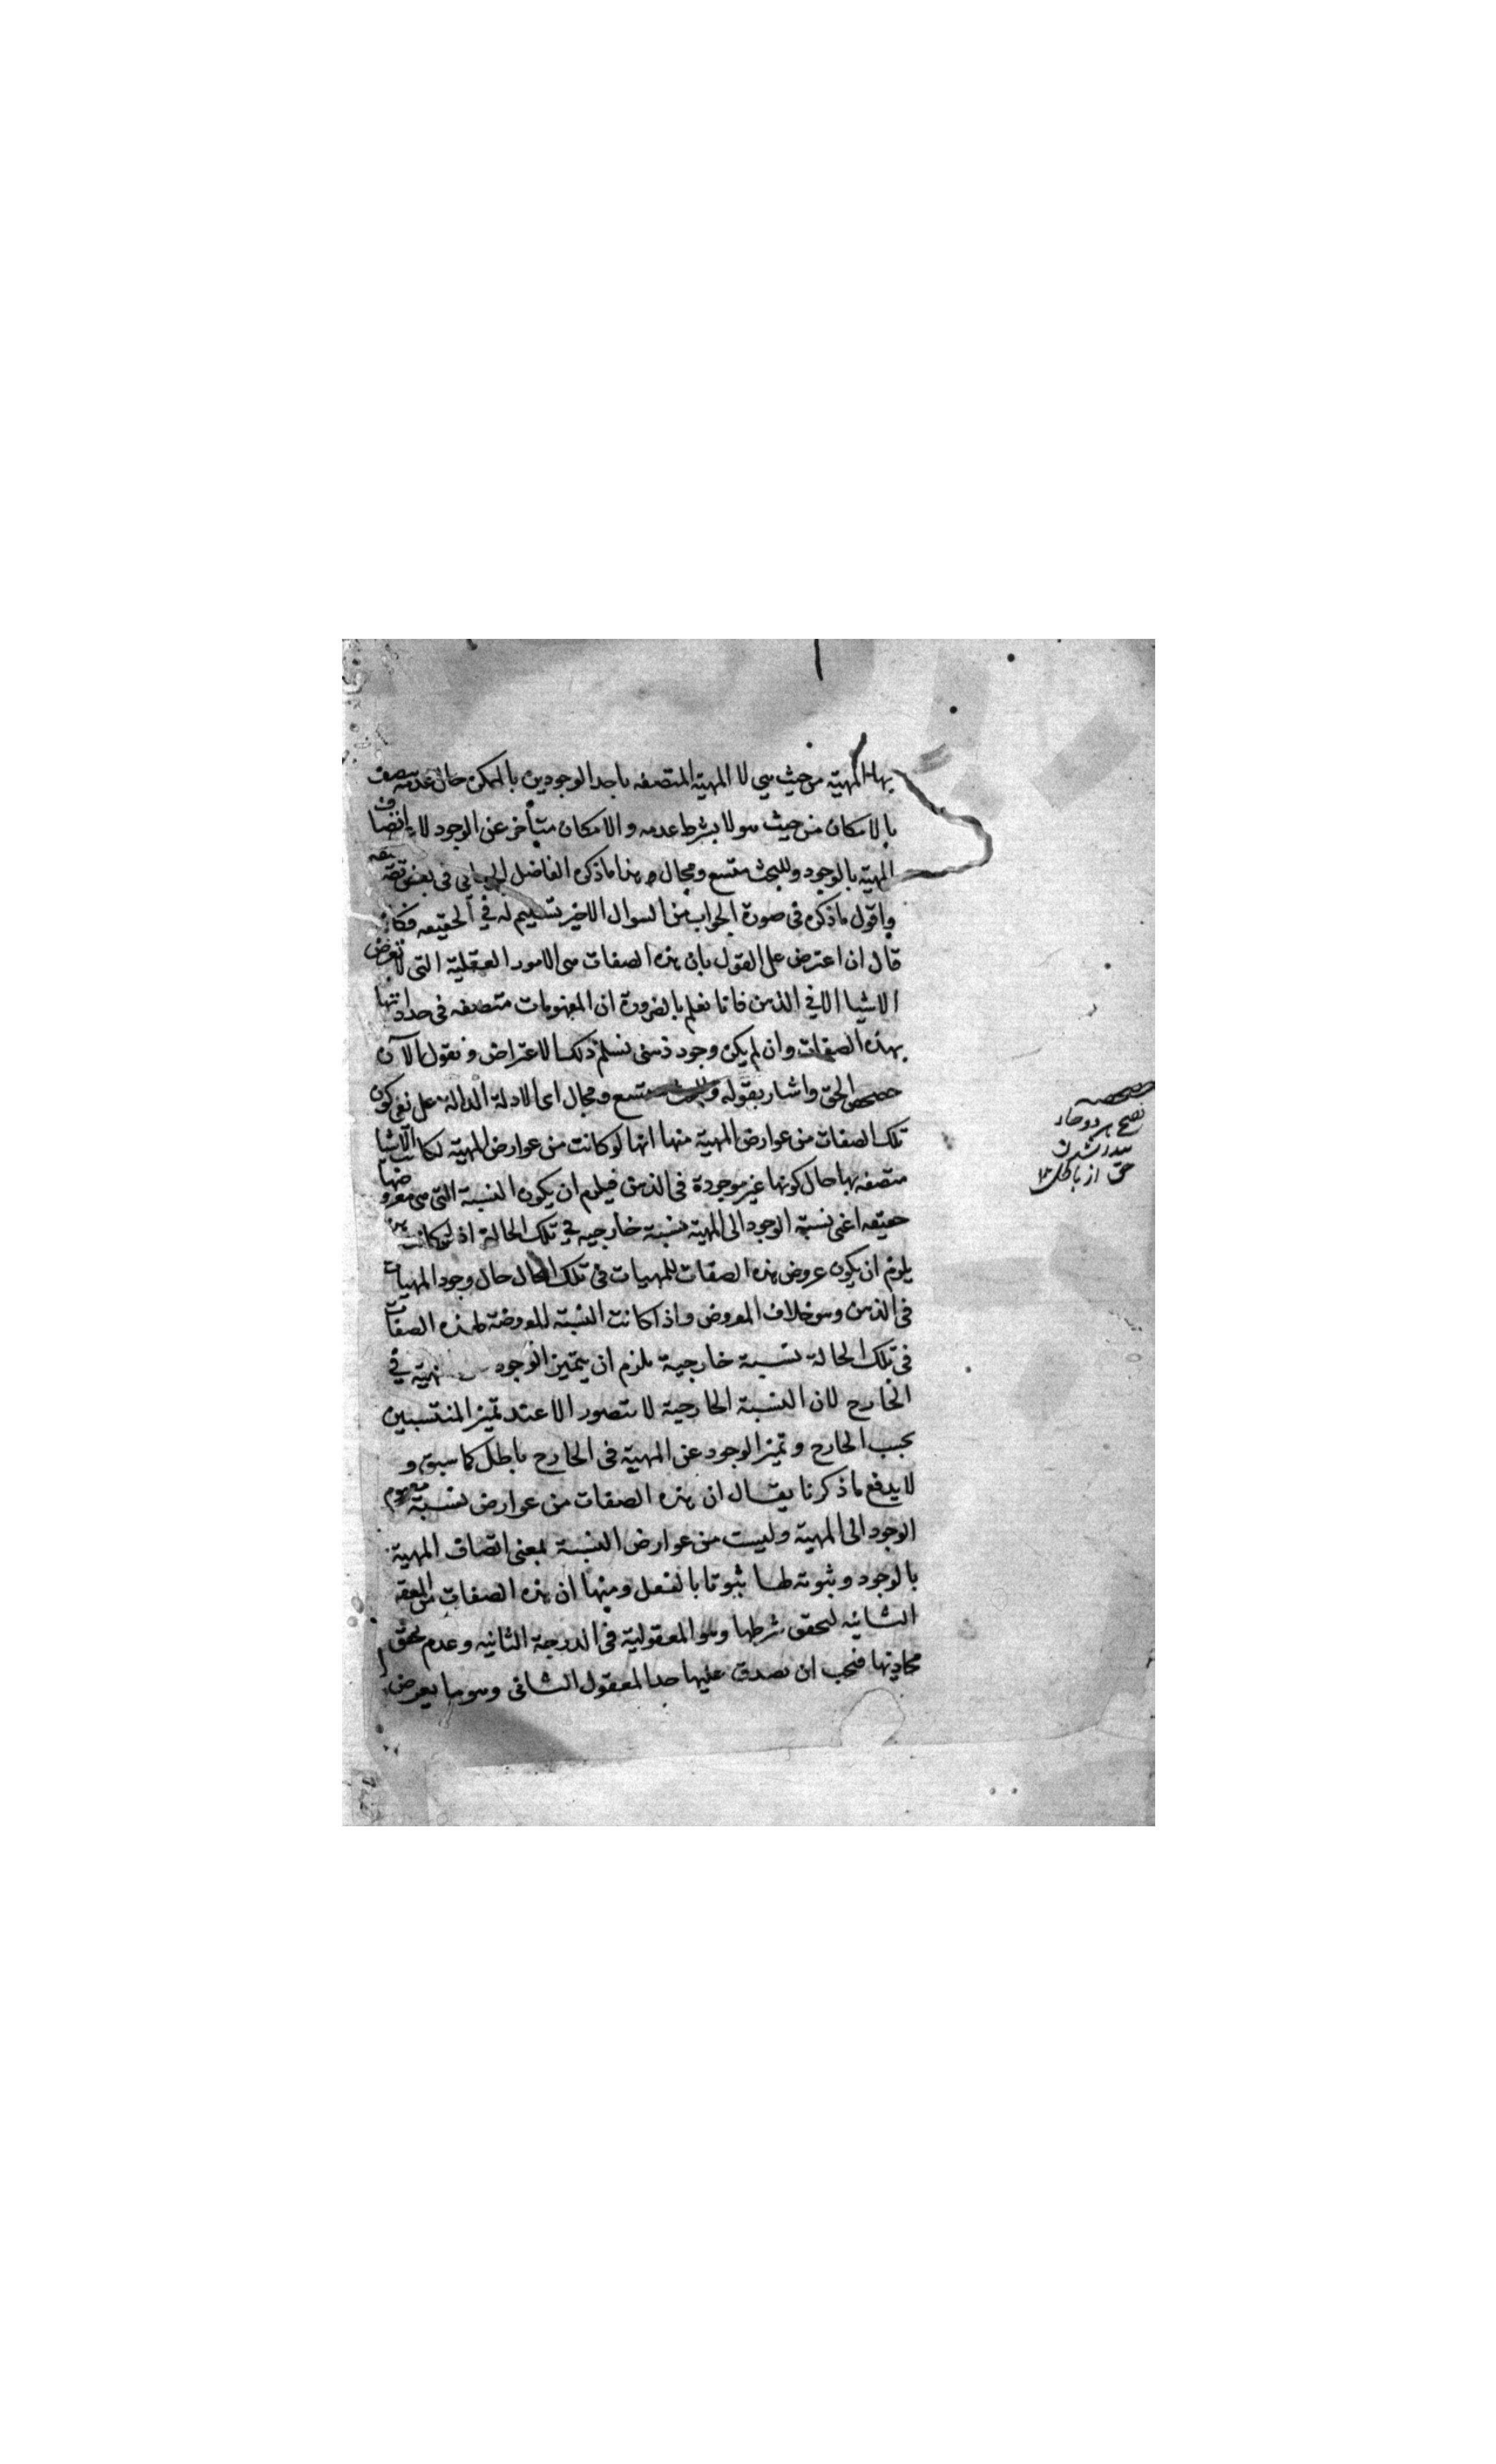 بها المهية من حيث هي لا المهية المتصفه باحد الوجودين بالممكن حال عدمه يتصف
بالامكان من حيث هو لا بشرط عدمه والامكان متأخر عن الوجود لا اتصاف
المهية بالوجود وللبحث متسع ومجال هذا ما ذكره الفاضل في بعض
واقول ما ذكره في صورة الجواب من السوال الاخير تسليم له في الحقيقه فكانه
قال ان اعترض على القول بان هذه الصفات من الامور العقلية التى لا تعرض
الاشيا الا في الذهن فانا نعلم بالضرورة ان المفهومات متصفه فى حد ذاتها
بهذه الصفات وان لم يكن وجود ذهنى نسلم ذلك الاعتراض ونقول الآن
حصحص الحق واشار بقوله وللبحث متسع ومجال اى الادلة الدالة على نفى كون
تلك الصفات من عوارض المهية منها انها لو كانت من عوارض المهية لكانت الاشيا
متصفه بها حال كونها غير موجودة فى الذهن فيلزم ان يكون النسبة التى هى معروضها
حقيقه اعنى نسبة الوجود الى المهية نسبة خارجيه في تلك الحالة اذ لو كانت
يلزم ان يكون عروض هذه الصفات للمهيات فى تلك الحال حال وجود المهيات
فى الذهن وهو خلاف المفروض واذا كانت النسبة المعروضة لهذه الصفات
فى تلك الحالة نسبة خارجية يلزم ان يتميز الوجود في
الخارج لان النسبة الخارجية لا تتصور الا عند تميز المنتسبين
بحسب الخارج وتميز الوجود عن المهية فى الخارج باطل كما سبق و
لا يدفع ما ذكرنا يقال ان هذه الصفات من عوارض نسبة مفهوم
الوجود الى المهية وليست من عوارض النسبة بمعنى اتصاف المهية
بالوجود وثبوته لها ثبوتا بالفعل ومنها ان هذه الصفات من المعقو
الثانيه لتحقق شرطها وهو المعقولية فى الدرجة الثانيه وعدم تحقق
محاذيها فيجب ان يصدق عليها حد المعقول الثانى وهو ما يعرض
حصحصه
هر دو حاء
حق از باطل ١٢